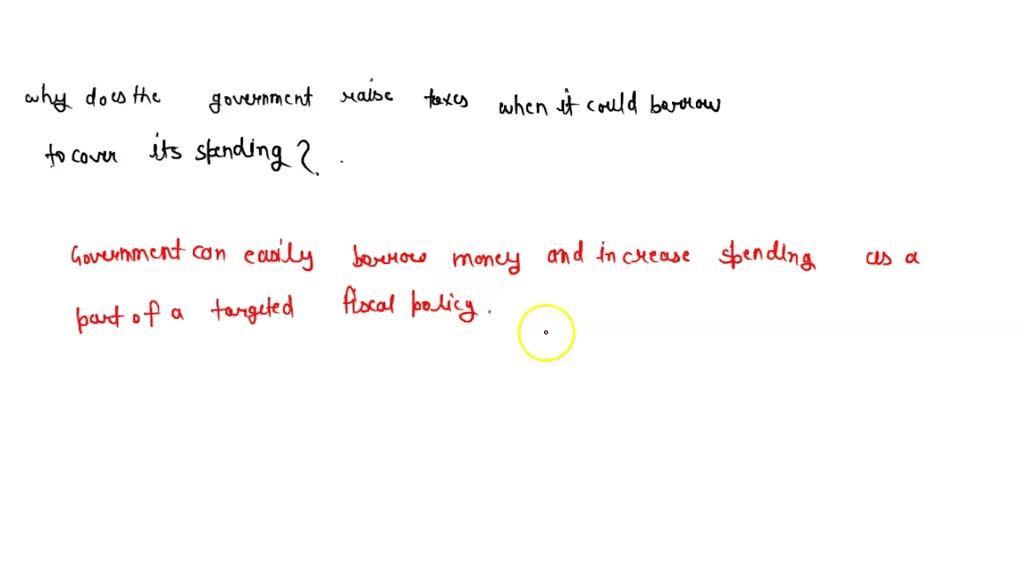 why does the government raise taxes when it could borrow
to cover its spending?.
Government can easily borrow money and increase spending as a
part of a targeted fiscal policy.